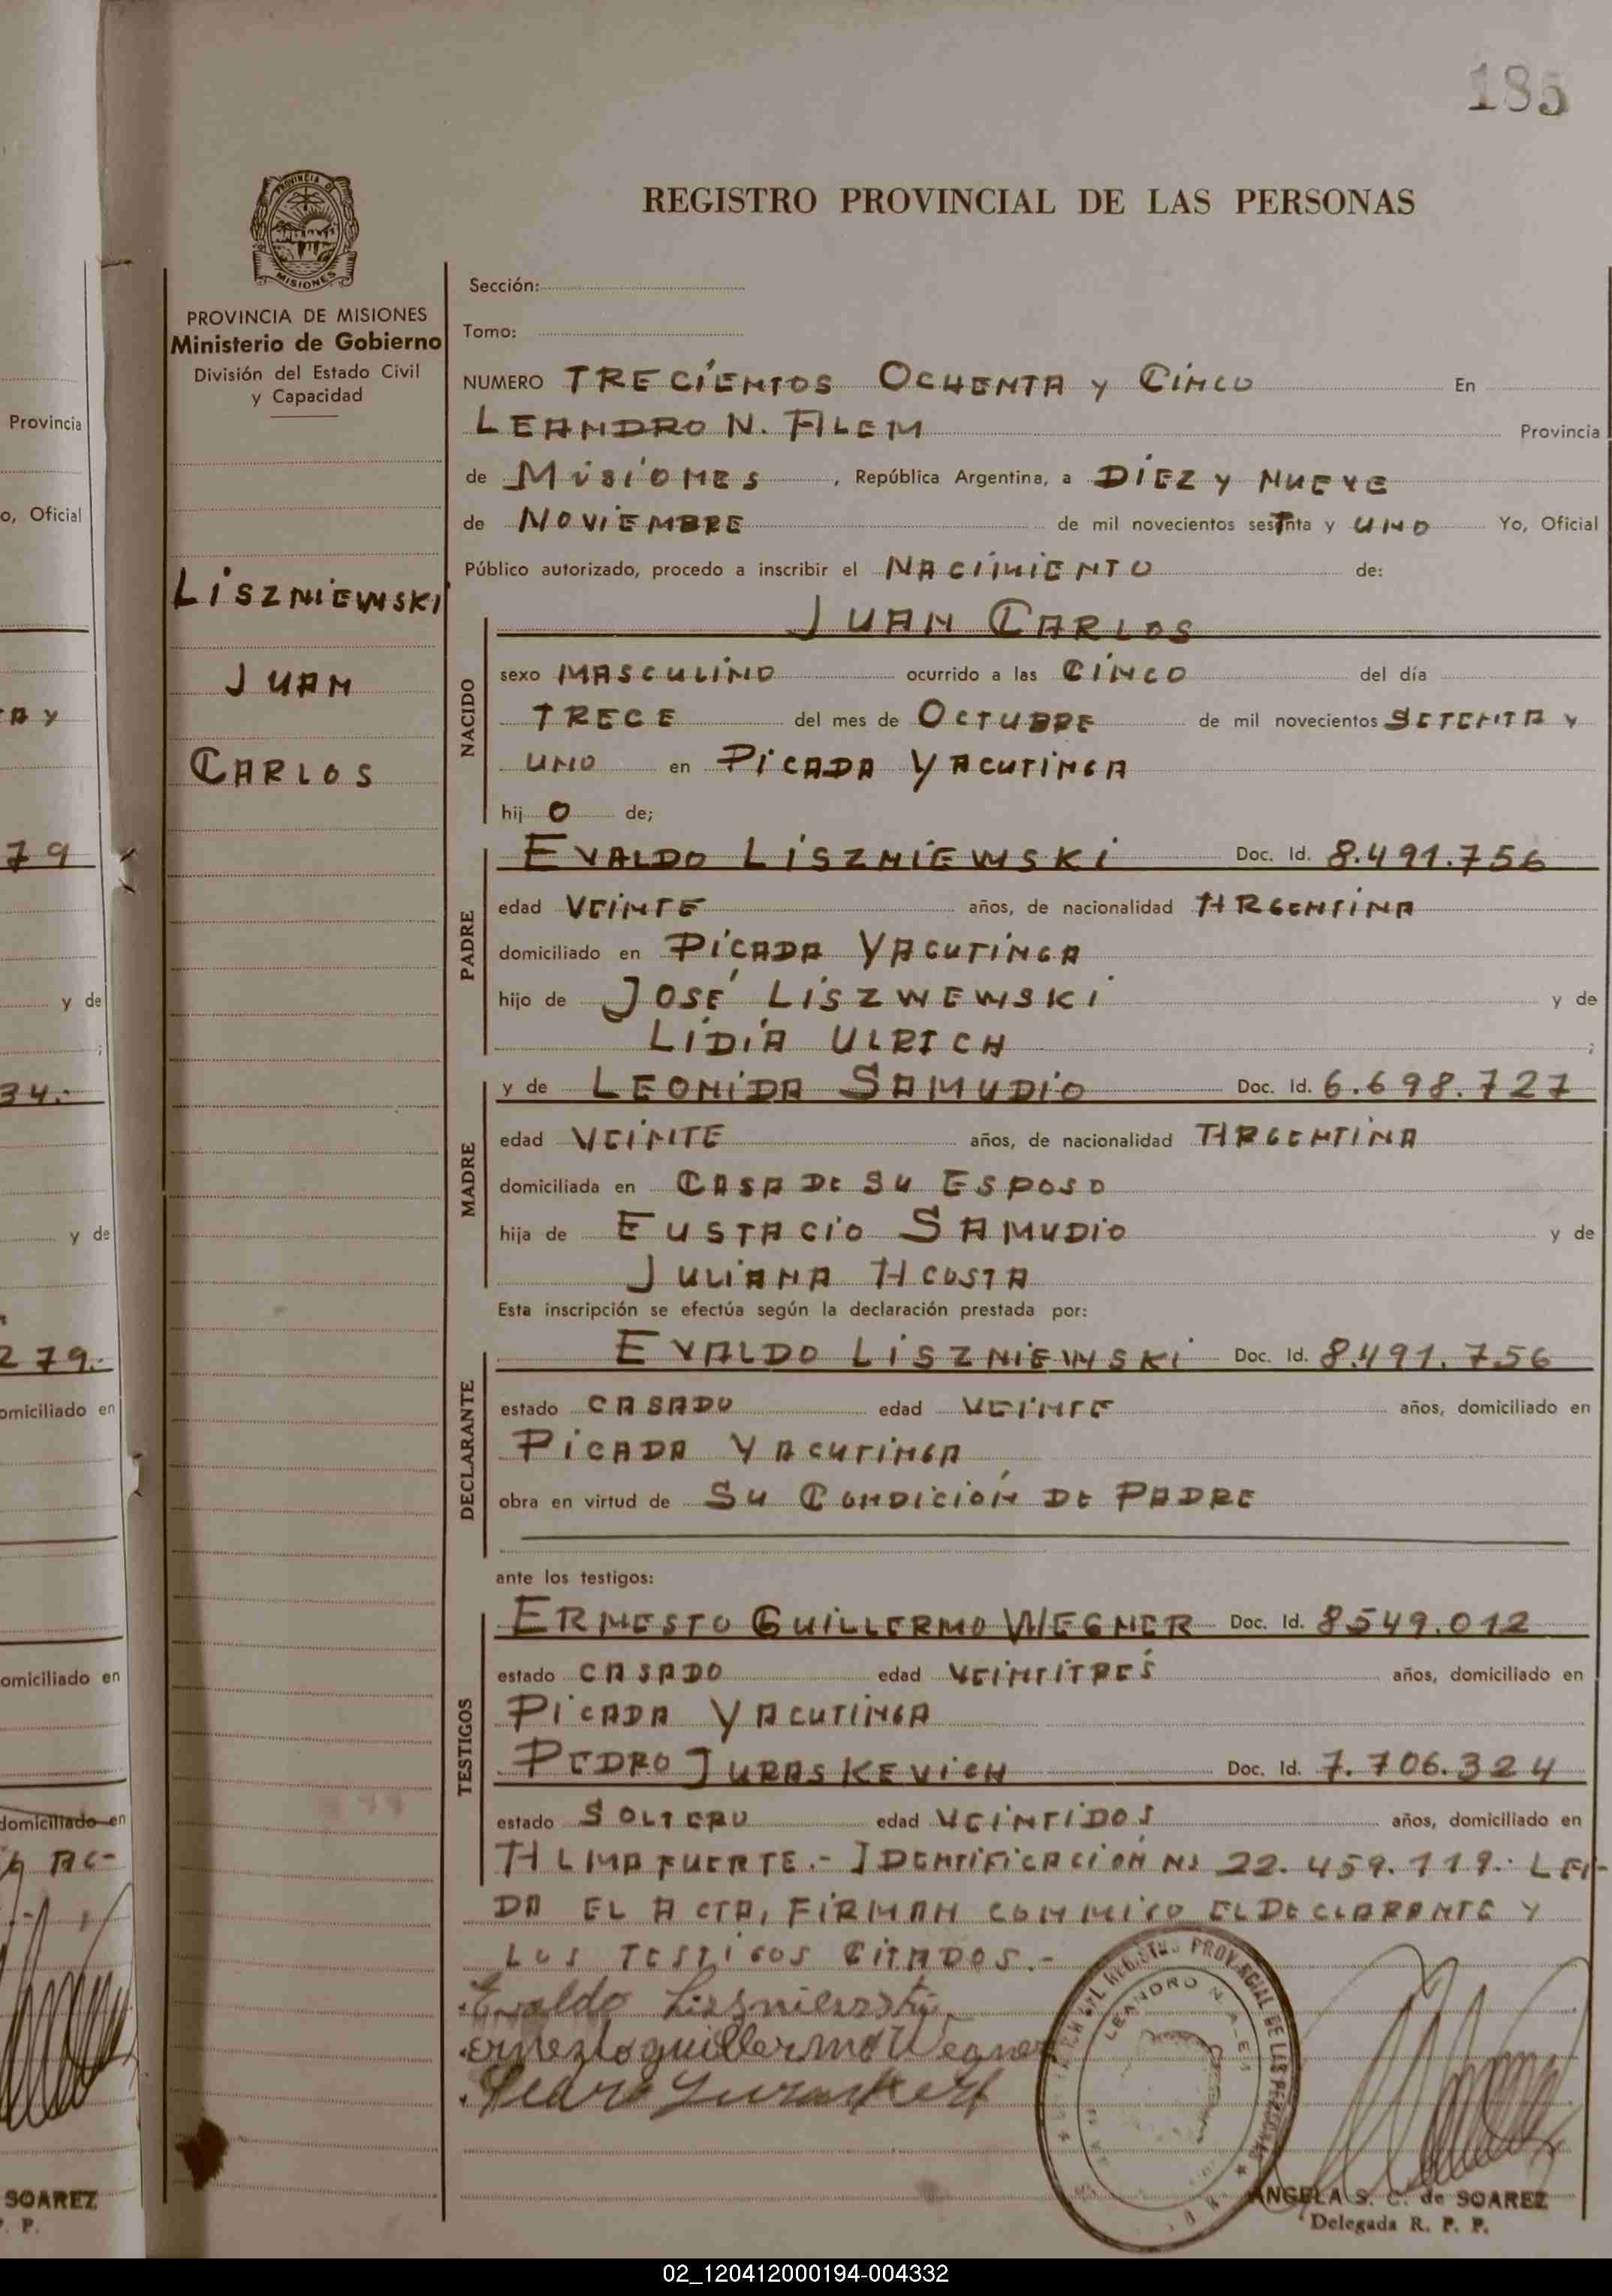 185
REGISTRO PROVINCIAL DE LAS PERSONAS
PROVINCIA DE
MISIONES
PROVINCIA DE MISIONES
Ministerio de Gobierno
División del Estado Civil
y Capacidad
LISZNIEWSKI
JUAN
CARLOS
Sección:
Tomo:
NUMERO TRECIENTOS OCHENTA Y CINCO En
LEANDRO N. ALEM Provincia
de MISIONES, República Argentina, a DIEZ Y NUEVE
de NOVIEMBRE de mil novecientos sesTnta y UNO Yo, Oficial
Público autorizado, procedo a inscribir el NACIMIENTO de:
JUAN CARLOS
NACIDO
sexo MASCULINO ocurrido a las CINCO del día
TRECE del mes de OCTUBRE de mil novecientos SETENTA Y
UNO en PICADA YACUTINGA
hijO de;
PADRE
EVALDO LISZNIEWSKI Doc. Id. 8.491.756
edad VEINTE años, de nacionalidad ARGENTINA
domiciliado en PICADA YACUTINGA
hijo de JOSÉ LISZWEWSKI y de
LIDIA ULRICH ;
MADRE
y de LEONIDA SAMUDIO Doc. Id. 6.698.727
edad VEINTE años, de nacionalidad ARGENTINA
domiciliada en CASA DE SU ESPOSO
hija de EUSTACIO SAMUDIO y de
JULIANA ACOSTA
Esta inscripción se efectúa según la declaración prestada por:
DECLARANTE
EVALDO LISZNIEWSKI Doc. Id. 8.491.756
estado CASADO edad VEINTE años, domiciliado en
PICADA YACUTINGA
obra en virtud de SU CONDICIÓN DE PADRE
ante los testigos:
TESTIGOS
ERNESTO GUILLERMO WEGNER Doc. Id. 8549.012
estado CASADO edad VEINTITRÉS años, domiciliado en
PICADA YACUTINGA
PEDRO JURASKEVICH Doc. Id. 7.706.324
estado SOLTERO edad VEINTIDOS años, domiciliado en
ALMAFUERTE.- IDENTIFICACIÓN Nº 22.459.119.- LEI-
DA EL ACTA, FIRMAN CONMIGO EL DECLARANTE Y
LOS TESTIGOS CITADOS.-
Evaldo Liszniewski
Ernesto guillermo Wegner
Pedro
REGISTRO PROVINCIAL DE LAS PERSONAS
LEANDRO N. ALEM
ANGELA S. C. de SOAREZ
Delegada R. P. P.
Provincia
o, Oficial
TA Y
79
y de
34.-
y de
279.-
omiciliado en
omiciliado en
domiciliado en
SOAREZ
P. P.
02_120412000194-004332